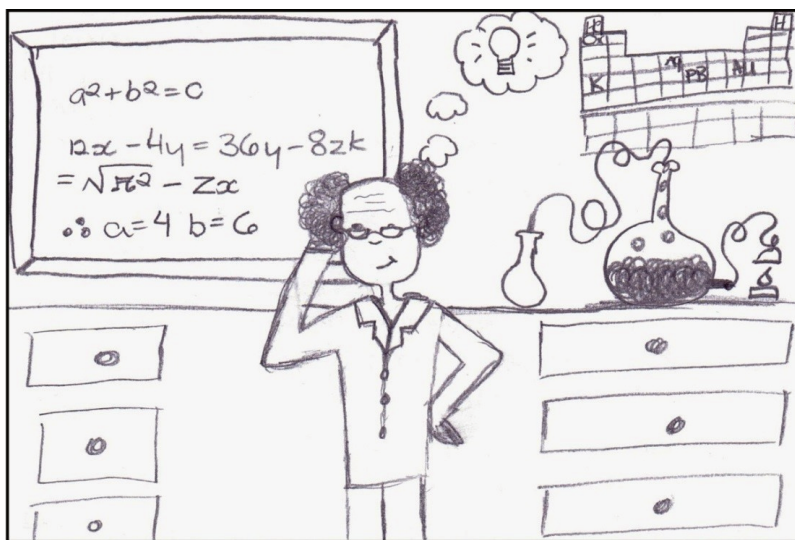 a²+b²=c
12x-4y=36y-8zk
=√π²-zx
∴ a=4 b=6
H
K
PB
AU